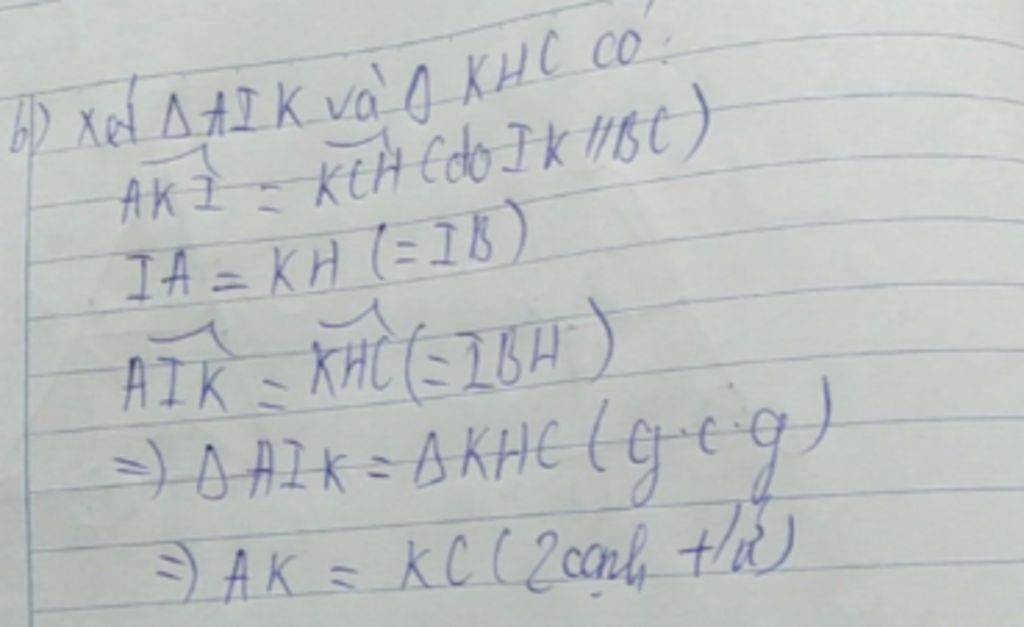 b) xét Δ AIK và Δ KHC có:
∠AKI = ∠KCH (do IK // BC)
IA = KH (= IB)
∠AIK = ∠KHC (= IBH)
=) Δ AIK = Δ KHC (g.c.g)
=) AK = KC (2 cạnh t/ứ)